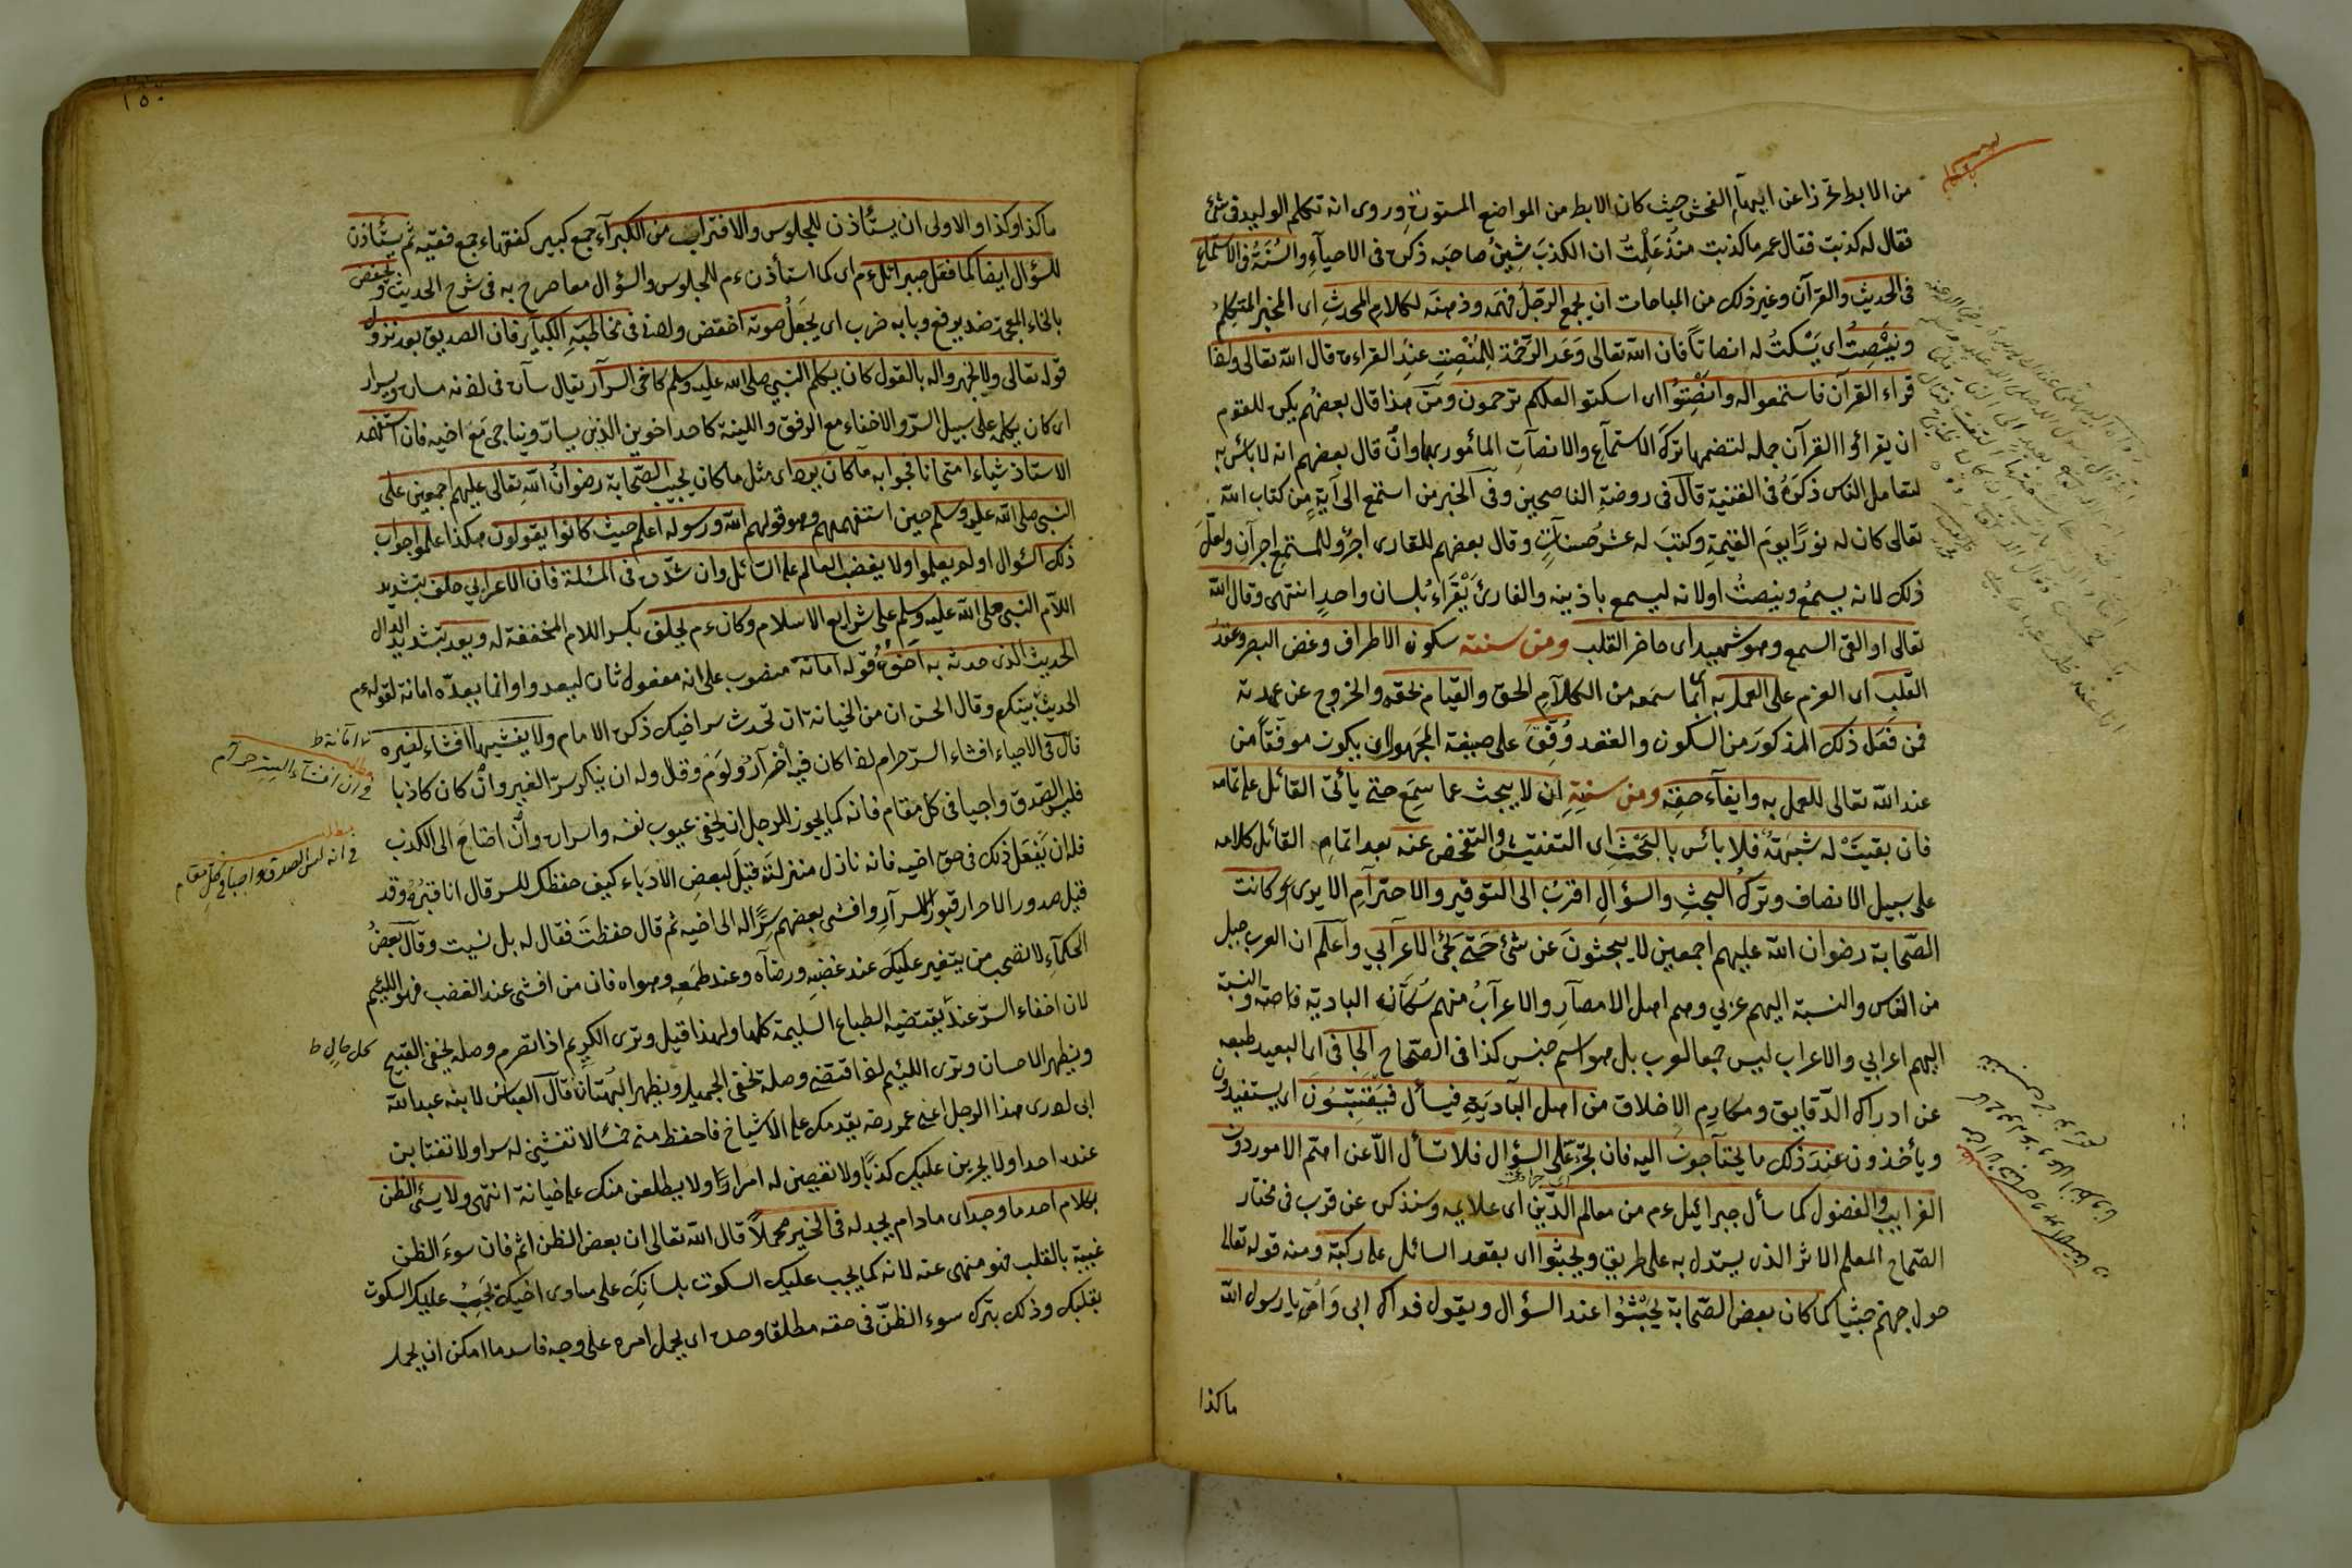 من الابط تحرزا عن ايهام الفحش حيث كان الابط من المواضع المستورة وروى انه تكلم الوليد في شئ
فقال له كذبت فقال عمر ما كذبت منذ علمت ان الكذب يشين صاحبه ذكره في الاحياء والسنة في الاستماع
في الحديث والقرآن وغير ذلك من المباحات ان يجمع الرجل فهمه وذهنه لكلام المحدث اى المخبر المتكلم
وينصت اى يسكت له انصاتا فان الله تعالى وعد الرحمة للمنصت عند القراءة قال الله تعالى واذا
قراء القرآن فاستمعوا له وانصتوا اى اسكتوا لعلكم ترحمون ومن هذا قال بعضهم يكره للقوم
ان يقرائوا القرآن جملة لتضمنها ترك الاستماع والانصات المأمور بها وان قال بعضهم انه لا بأس به
لتعامل الناس ذكره في القنية قال في روضة الناصحين وفي الخبر من استمع الى آية من كتاب الله
تعالى كان له نورا يوم القيمة وكتب له عشر حسنات وقال بعضهم للقارى اجر وللمستمع اجران ولعل
ذلك لانه يسمع وينصت او لانه ليسمع باذنيه والقارئ يقراء بلسان واحد انتهى وقال الله
تعالى او القى السمع وهو شهيد اى حاضر القلب ومن سننه سكون الاطراف وغض البصر وعقد
القلب اى العزم على العمل به اى بما سمعه من الكلام الحق والقيام بحقه والخروج عن عهدته
فمن فعل ذلك المذكور من السكون والعقد وفق على صيغة المجهول اى يكون موفقا من
عند الله تعالى للعمل به وايفاء حقه ومن سننه ان لا يبحث عما سمع حتى يأتى القائل على تمامه
فان بقيت له شبهة فلا بائس بالبحث اى التفتيش والتفحص عنه بعد اتمام القائل كلامه
على سبيل الانصاف وترك البحث والسؤال اقرب الى التوقير والاحترام الا يرى وكانت
الصحابة رضوان الله عليهم اجمعين لا يبحثون عن شئ حتى يجئ الاعرابي واعلم ان العرب جيل
من الناس والنسبة اليهم عربي وهم اهل الامصار والاعراب منهم سكان البادية خاصة والنسبة
اليهم اعرابي والاعراب ليس جمعا لعرب بل هو اسم جنس كذا في الصحاح الجافى اى البعيد طبعه
عن ادراك الدقايق ومكارم الاخلاق من اهل البادية فيسأل فيقتبسون اى يستفيدون
ويأخذون عند ذلك ما يحتاجون اليه فان تجرء على السؤال فلا تسأل الا عن اهم الامور دون
الغرايب والفضول كما سأل جبرائيل ءم من معالم الدين اى علايمه وسنذكره عن قرب في مختار
الصحاح المعلم الاثر الذى يستدل به على طريق ويجثوا اى يقعد السائل على ركبته ومنه قوله تعالى
حول جهنم جثيا كما كان بعض الصحابة يجثوا عند السؤال ويقول فداك ابى وامى يا رسول الله
ما كذا
١٥٠
ما كذا وكذا والاولى ان يستأذن للجلوس والاقتراب من الكبراء جمع كبير كفقهاء جمع فقيه ثم يستأذن
للسؤال ايضا كما فعل جبرائل ءم اى كما استأذن ءم للجلوس والسؤال معا صرح به في شرح الحديث ويخفض
بالخاء المعجمة ضد يرفع وبابه ضرب اى يجعل صوته اخفض ولصة في مخاطبة الكبار فان الصديق بعد نزول
قوله تعالى ولا تجهروا له بالقول كان يكلم النبي صلى الله عليه وسلم كاخى السرار يقال ساره في اذنه مسارة وسرار
اى كان يكلمه على سبيل السر والاخفاء مع الرفق واللينة كاحد اخوين الذين يسار ويناجى مع اخيه فان استفهمه
الاستاذ شياء امتحانا فجوابه ما كان يرد اى مثل ما كان يجيب الصحابة رضوان الله تعالى عليهم اجمعين على
النبي صلى الله عليه وسلم حين استفهمهم وهو قولهم الله ورسوله اعلم حيث كانوا يقولون هكذا علموا جواب
ذلك السؤال او لم يعلموا ولا يغضب العالم على السائل وان شدد في المسئلة فان الاعرابي حلف بتشديد
اللام النبي صلى الله عليه وسلم على شرايع الاسلام وكان ءم يحلف بكسر اللام المخففة له ويعد بتشديد الدال
الحديث الذى حدثه به اخوه قوله امانة منصوب على انه مفعول ثان ليعد وانما يعده امانة لقوله ءم
الحديث بينكم وقال الحسن ان من الخيانة ان تحدث سر اخيك ذكره الامام ولا يفشيها افشاء لغيره
قال في الاحياء افشاء السر حرام اذا كان فيه اضرار ولؤم وقال وله ان ينكر سر الغير وان كان كاذبا
فليس الصدق واجبا في كل مقام فانه كما يجوز للرجل ان يخفى عيوب نفسه واسراره وان احتاج الى الكذب
فله ان يفعل ذلك في حق اخيه فانه نازل منزلته قيل لبعض الادباء كيف حفظك للسر قال انا قبره وقد
قيل صدور الاحرار قبور الاسرار وافشى بعضهم سرا له الى اخيه ثم قال حفظت فقال له بل نسيت وقال بعض
الحكماء لا تصحب من يتغير عليك عند غضبه ورضاه وعند طمعه وهواه فان من افشى عند الغضب فهو اللئيم
لان اخفاء السر عنده يقتضيه الطباع السليمة كلها ولهذا قيل وترى الكريم اذا تصرم وصله يخفى القبيح
ويظهر الاحسان وترى اللئيم اذا تقضى وصله يخفى الجميل ويظهر البهتانا قال العباس لابنه عبد الله
انى لارى هذا الرجل اعنى عمر رضه يقدمك على الاشياخ فاحفظ منى خمسا لا تفشين له سرا ولا تغتابن
عنده احدا ولا يجرين عليك كذبا ولا تعصين له امرا ولا يطلعن منك على خيانة انتهى ولا يسئ الظن
بكلام احد ما وجد اى مادام يجد له في الخير محملا قال الله تعالى ان بعض الظن اثم فان سوء الظن
غيبة بالقلب فهو منهى عنه لانه كما يجب عليك السكوت بلسانك على مساوى اخيك يجب عليك السكوت
بقلبك وذلك بترك سوء الظن في حقه مطلقا وحده اى يحمل امره على وجه فاسد ما امكن ان يحمل
في ان افشاء السر حرام
مطلب
في انه ليس الصدق واجبا في كل مقام